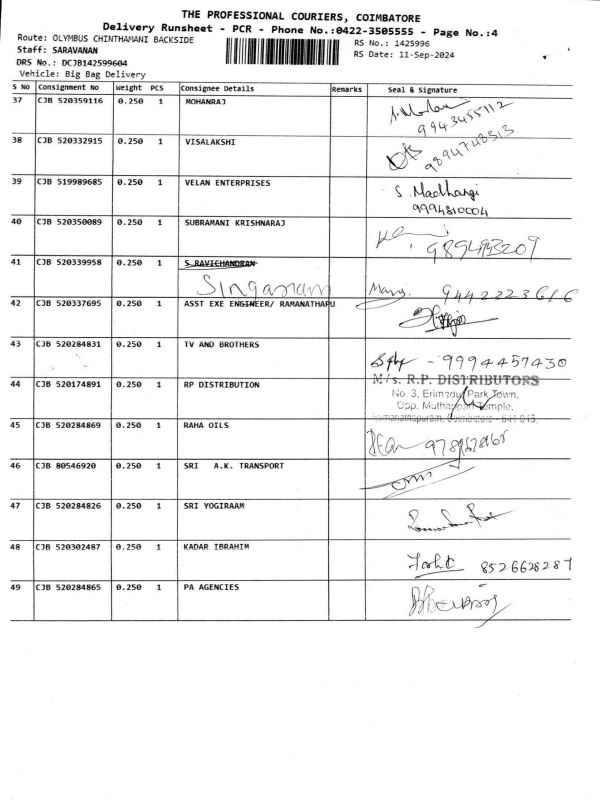 THE PROFESSIONAL COURIERS, COIMBATORE
Delivery Runsheet - PCR - Phone No.:0422-3505555 - Page No.:4
Route: OLYMBUS CHINTHAMANI BACKSIDE RS No.: 1425996
Staff: SARAVANAN RS Date: 11-Sep-2024
DRS No.: DCJB142599604
Vehicle: Big Bag Delivery
S No Consignment No Weight PCS Consignee Details Remarks Seal & Signature
37 CJB 520359116 0.250 1 MOHANRAJ
9943455112
38 CJB 520332915 0.250 1 VISALAKSHI
9894748313
39 CJB 519989685 0.250 1 VELAN ENTERPRISES S. Madhangi
9994810004
40 CJB 520350089 0.250 1 SUBRAMANI KRISHNARAJ
9894943209
41 CJB 520339958 0.250 1 S RAVICHANDRAN
Singaram 9442223616
42 CJB 520337695 0.250 1 ASST EXE ENGINEER/ RAMANATHAPU
43 CJB 520284831 0.250 1 TV AND BROTHERS
- 9994457430
44 CJB 520174891 0.250 1 RP DISTRIBUTION M/s. R.P. DISTRIBUTORS
No. 3, Erimedu Park Town,
Opp. Muthappan Temple,
Ramanathapuram, Coimbatore - 641 045.
45 CJB 520284869 0.250 1 RAHA OILS
46 CJB 80546920 0.250 1 SRI A.K. TRANSPORT
47 CJB 520284826 0.250 1 SRI YOGIRAAM
48 CJB 520302487 0.250 1 KADAR IBRAHIM
8526628287
49 CJB 520284865 0.250 1 PA AGENCIES